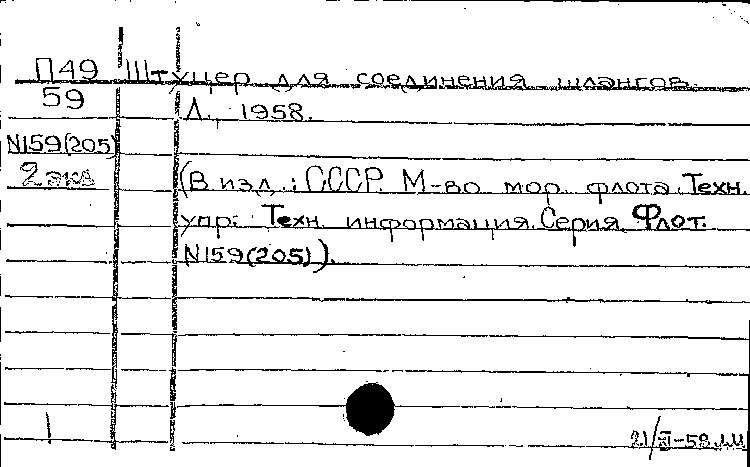 П49 Штуцер для соединения шлангов.
59 Л., 1958.
N159(205)
2 экз (В изд.: СССР. М-во мор. флота. Техн.
упр. Техн. информация. Серия Флот.
N159(205)).